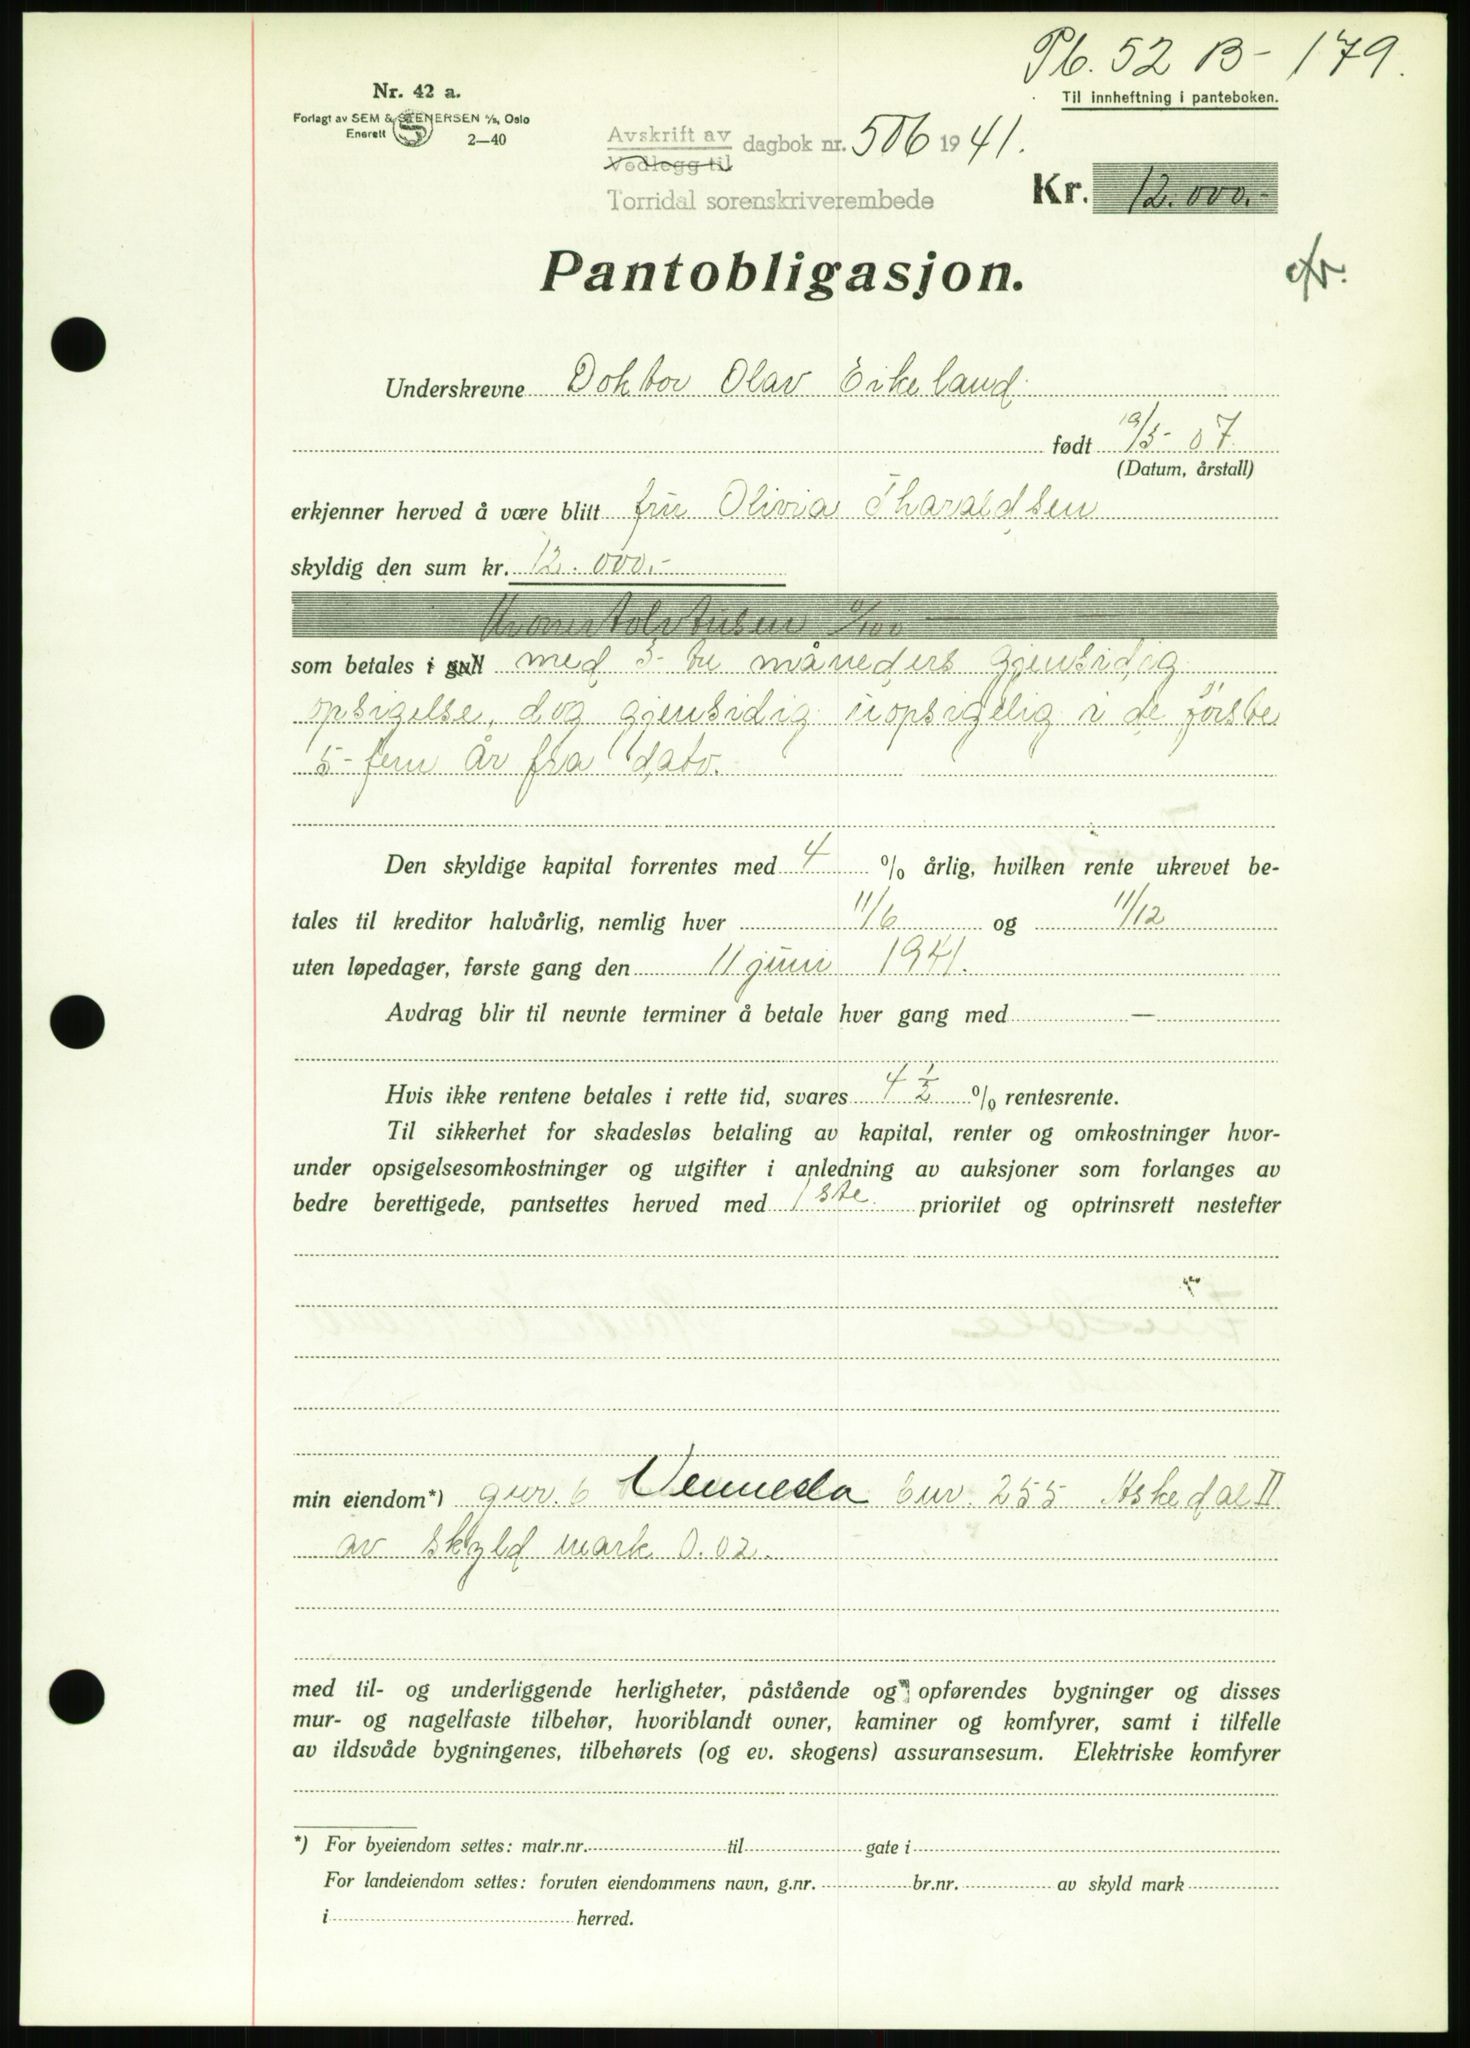 Pb. 52 B - 179.
Til innheftning i panteboken.
Nr. 42 a.
Forlagt av SEM & STENERSEN A/S, Oslo
Enerett
2—40
Avskrift av
Vedlegg til
dagbok nr. 506 1941.
Torridal sorenskriverembede
Kr. 12.000.-
Pantobligasjon.
Underskrevne Doktor Olav Eikeland
født 19/5-07.
(Datum, årstall)
erkjenner herved å være blitt fru Olivia Tharaldsen
skyldig den sum kr. 12.000.-
Kroner tolvtusen 0/100
som betales i gull med 3- tre måneders gjensidig
opsigelse, dog gjensidig uopsigelig i de første
5- fem år fra dato.
Den skyldige kapital forrentes med 4 % årlig, hvilken rente ukrevet be-
tales til kreditor halvårlig, nemlig hver 11/6 og 11/12
uten løpedager, første gang den 11 juni 1941.
Avdrag blir til nevnte terminer å betale hver gang med —
Hvis ikke rentene betales i rette tid, svares 4 1/2 % rentesrente.
Til sikkerhet for skadesløs betaling av kapital, renter og omkostninger hvor-
under opsigelsesomkostninger og utgifter i anledning av auksjoner som forlanges av
bedre berettigede, pantsettes herved med 1ste prioritet og optrinsrett nestefter
min eiendom*) gnr. 6 Vennesla bnr. 255 Askedal II
av skyld mark 0.02.
med til- og underliggende herligheter, påstående og opførendes bygninger og disses
mur- og nagelfaste tilbehør, hvoriblandt ovner, kaminer og komfyrer, samt i tilfelle
av ildsvåde bygningenes, tilbehørets (og ev. skogens) assuransesum. Elektriske komfyrer
*) For byeiendom settes: matr.nr. til gate i
For landeiendom settes: foruten eiendommens navn, g.nr. br.nr. av skyld mark
i herred.